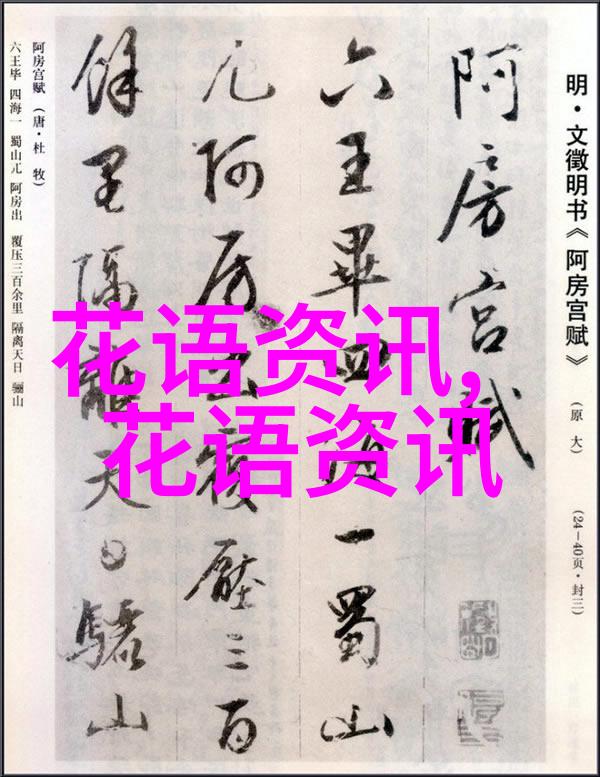 明·文徵明书《阿房宫赋》（原大）（24—40页·封三）
阿房宫賦
六王畢四海一蜀山
兀阿房出覆壓三百
餘里隔離天日驪山
阿房宫赋（唐·杜牧）
六王毕 四海一 蜀山兀 阿房出 覆压三百余里 隔离天日 骊山
花语资讯,
花语资讯